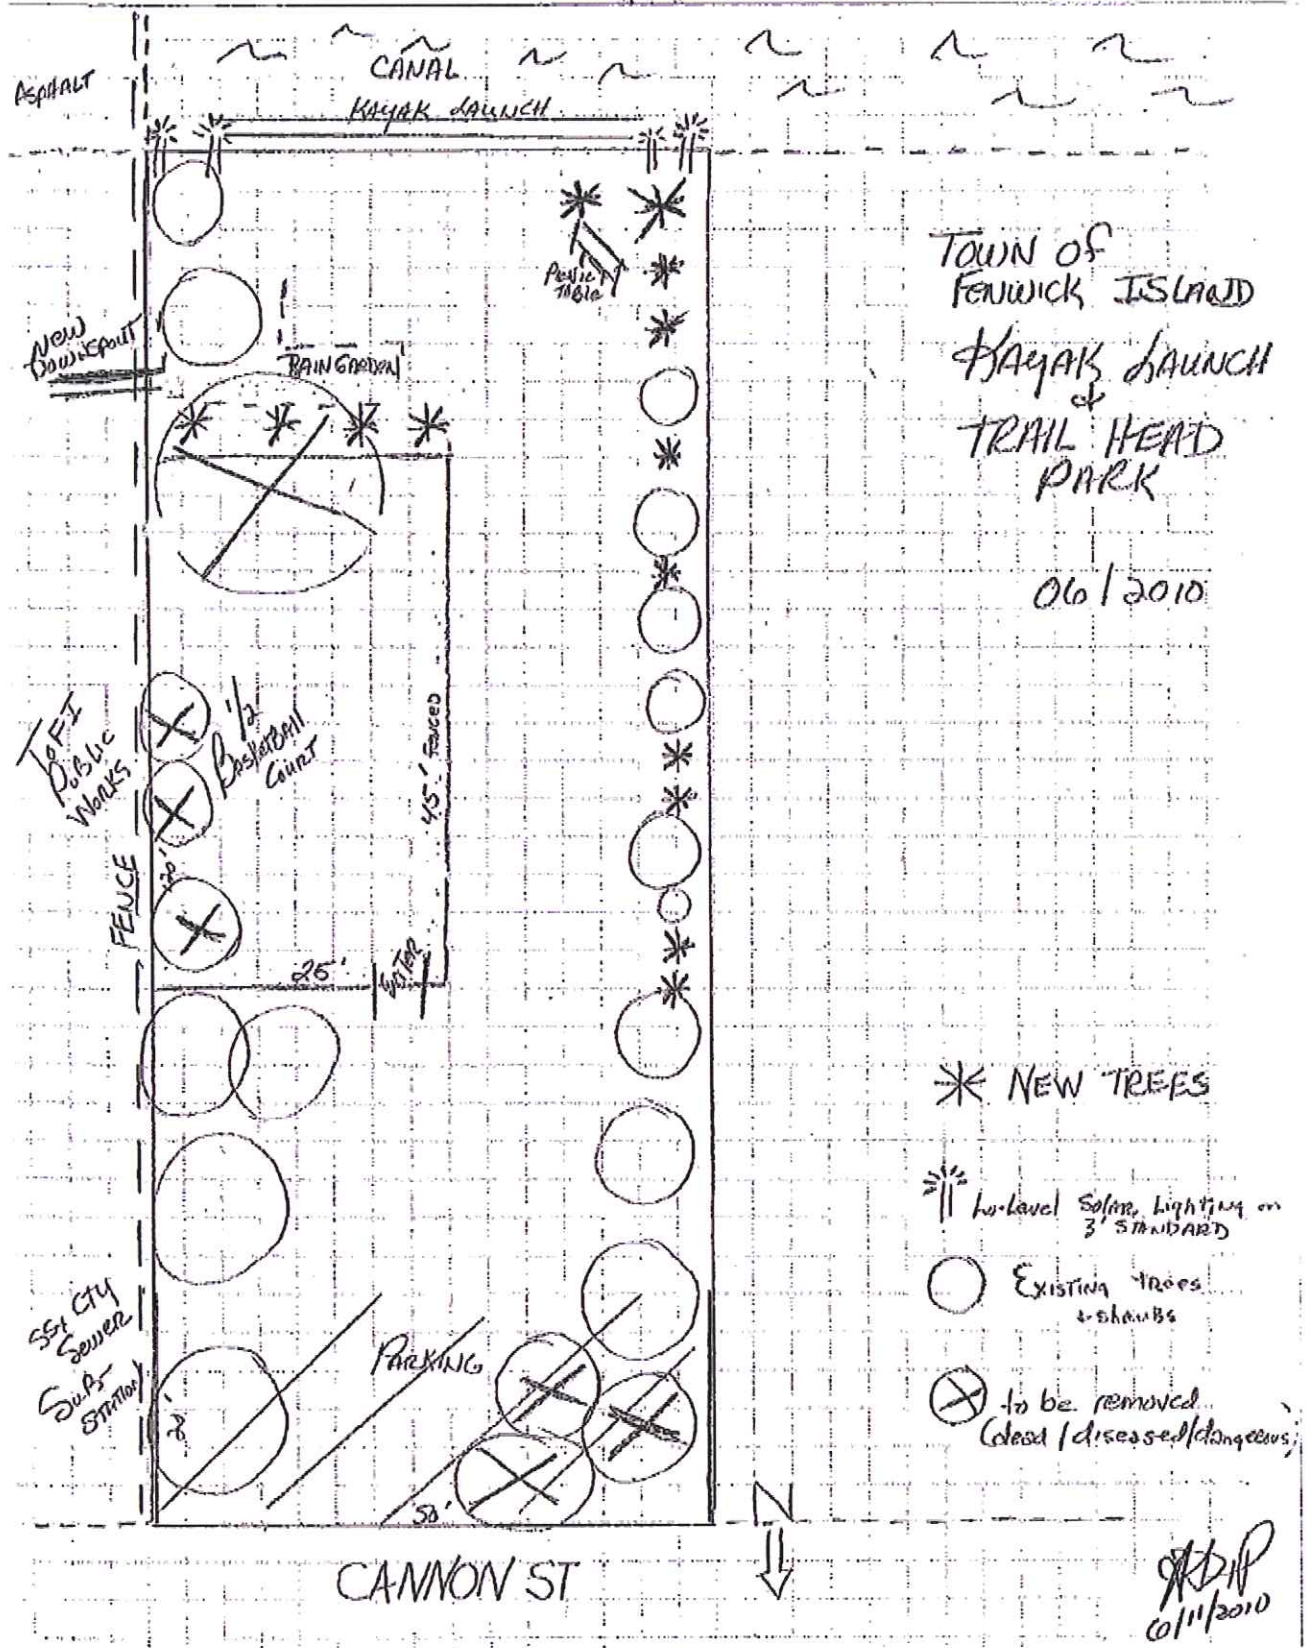 ASPHALT
CANAL
KAYAK LAUNCH
PICNIC
TABLE
TOWN OF
FENWICK ISLAND
KAYAK LAUNCH
&
TRAIL HEAD
PARK
06/2010
NEW
DOWNSPOUT
RAIN GARDEN
TOFI
PUBLIC
WORKS
1/2
BASKETBALL
COURT
45' FENCED
FENCE
25'
ENTER
NEW TREES
Lo-Level Solar Lighting on
3' STANDARD
EXISTING trees
& shrubs
to be removed
(dead/diseased/dangerous)
SSX CTY
Sewer
SUB-
STATION
PARKING
50'
N
CANNON ST
6/11/2010